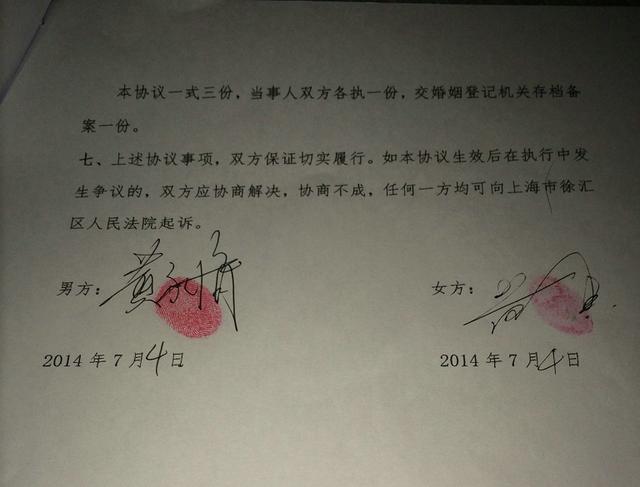 本协议一式三份，当事人双方各执一份，交婚姻登记机关存档备
案一份。
七、上述协议事项，双方保证切实履行。如本协议生效后在执行中发
生争议的，双方应协商解决，协商不成，任何一方均可向上海市徐汇
区人民法院起诉。
男方：
女方：
2014 年 7 月 4 日
2014 年 7 月 4 日